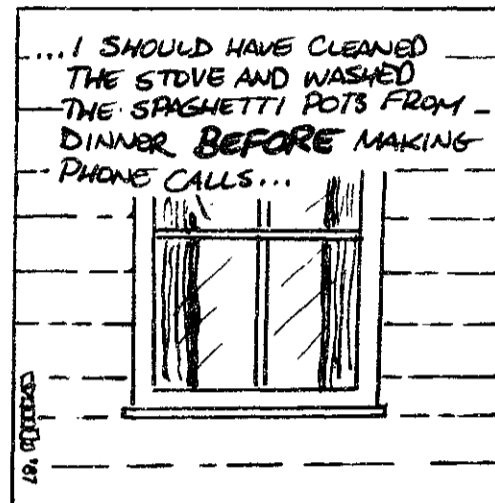 ...I SHOULD HAVE CLEANED
THE STOVE AND WASHED
THE SPAGHETTI POTS FROM
DINNER BEFORE MAKING
PHONE CALLS...
'87